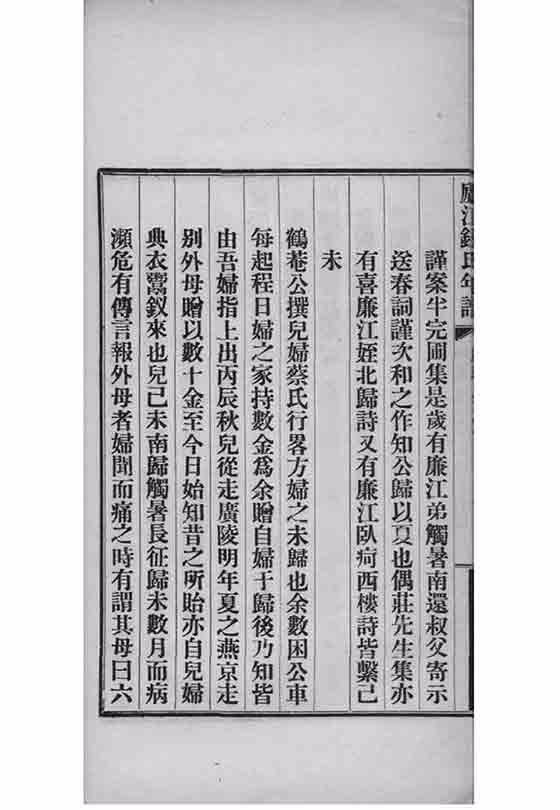 廬江錢氏年譜
謹案半完圃集是歲有廉江弟觸暑南還叔父寄示
送春詞謹次和之作知公歸以夏也偶莊先生集亦
有喜廉江姪北歸詩又有廉江臥疴西樓詩皆繫己
未
鶴菴公撰兒婦蔡氏行畧方婦之未歸也余數困公車
每起程日婦之家持數金爲余贈自婦于歸後乃知皆
由吾婦指上出丙辰秋兒從走廣陵明年夏之燕京走
別外母贈以數十金至今日始知昔之所貽亦自兒婦
典衣鬻釵來也兒己未南歸觸暑長征歸未數月而病
瀕危有傳言報外母者婦聞而痛之時有謂其母曰六